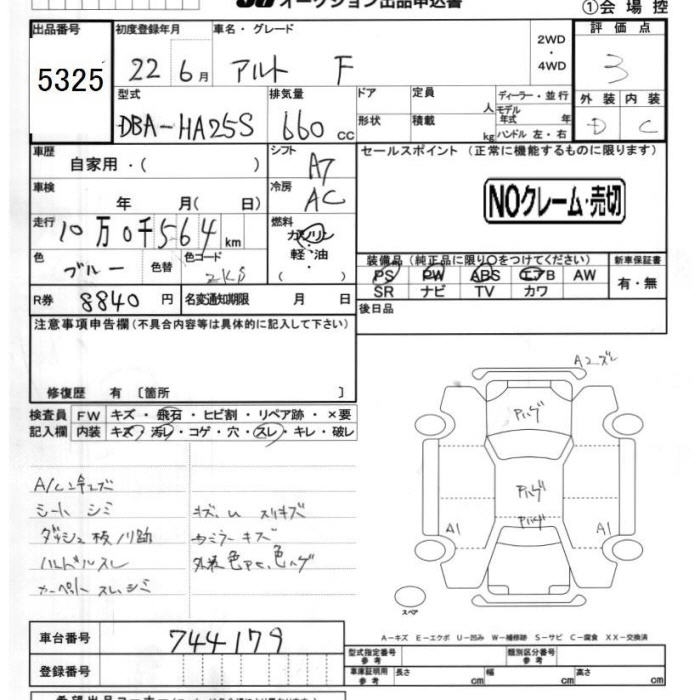 オークション出品申込書
①会場控
出品番号 初度登録年月 車名・グレード 2WD・4WD 評価点
5325 22年6月 アルト F 3
型式 排気量 ドア 定員 人 ディーラー・並行 外装 内装
DBA-HA25S 660cc 形状 積載 kg モデル年式 年 ハンドル 左・右 D C
車歴 自家用・( ) シフト A7 セールスポイント (正常に機能するものに限ります)
車検 年 月( 日) 冷房 AC NOクレーム・売切
走行 10万0千564km 燃料 ガソリン 軽・油 ( )
色 ブルー 色替 色コード 装備品 (純正品に限り○をつけてください) 新車保証書
PS PW ABS エアB AW 有・無
SR ナビ TV カワ
R券 8840円 名変通知期限 月 日 後日品
注意事項申告欄(不具合内容等は具体的に記入して下さい)
修復歴 有 〔箇所 〕
検査員 FW キズ・飛石・ヒビ割・リペア跡・×要
記入欄 内装 キズ・汚レ・コゲ・穴・スレ・キレ・破レ
A2ズレ
Pハゲ
Pハゲ
Pハゲ
A1 A1
シート シミ キズ、U スリキズ
カーペット スレ、シミ
スペア
A−キズ E−エクボ U−凹み W−補修跡 S−サビ C−腐食 XX−交換済
車台番号 744179 型式指定番号 参考 類別区分番号 参考
登録番号 車庫証明用 参考 長さ cm 幅 cm 高さ cm